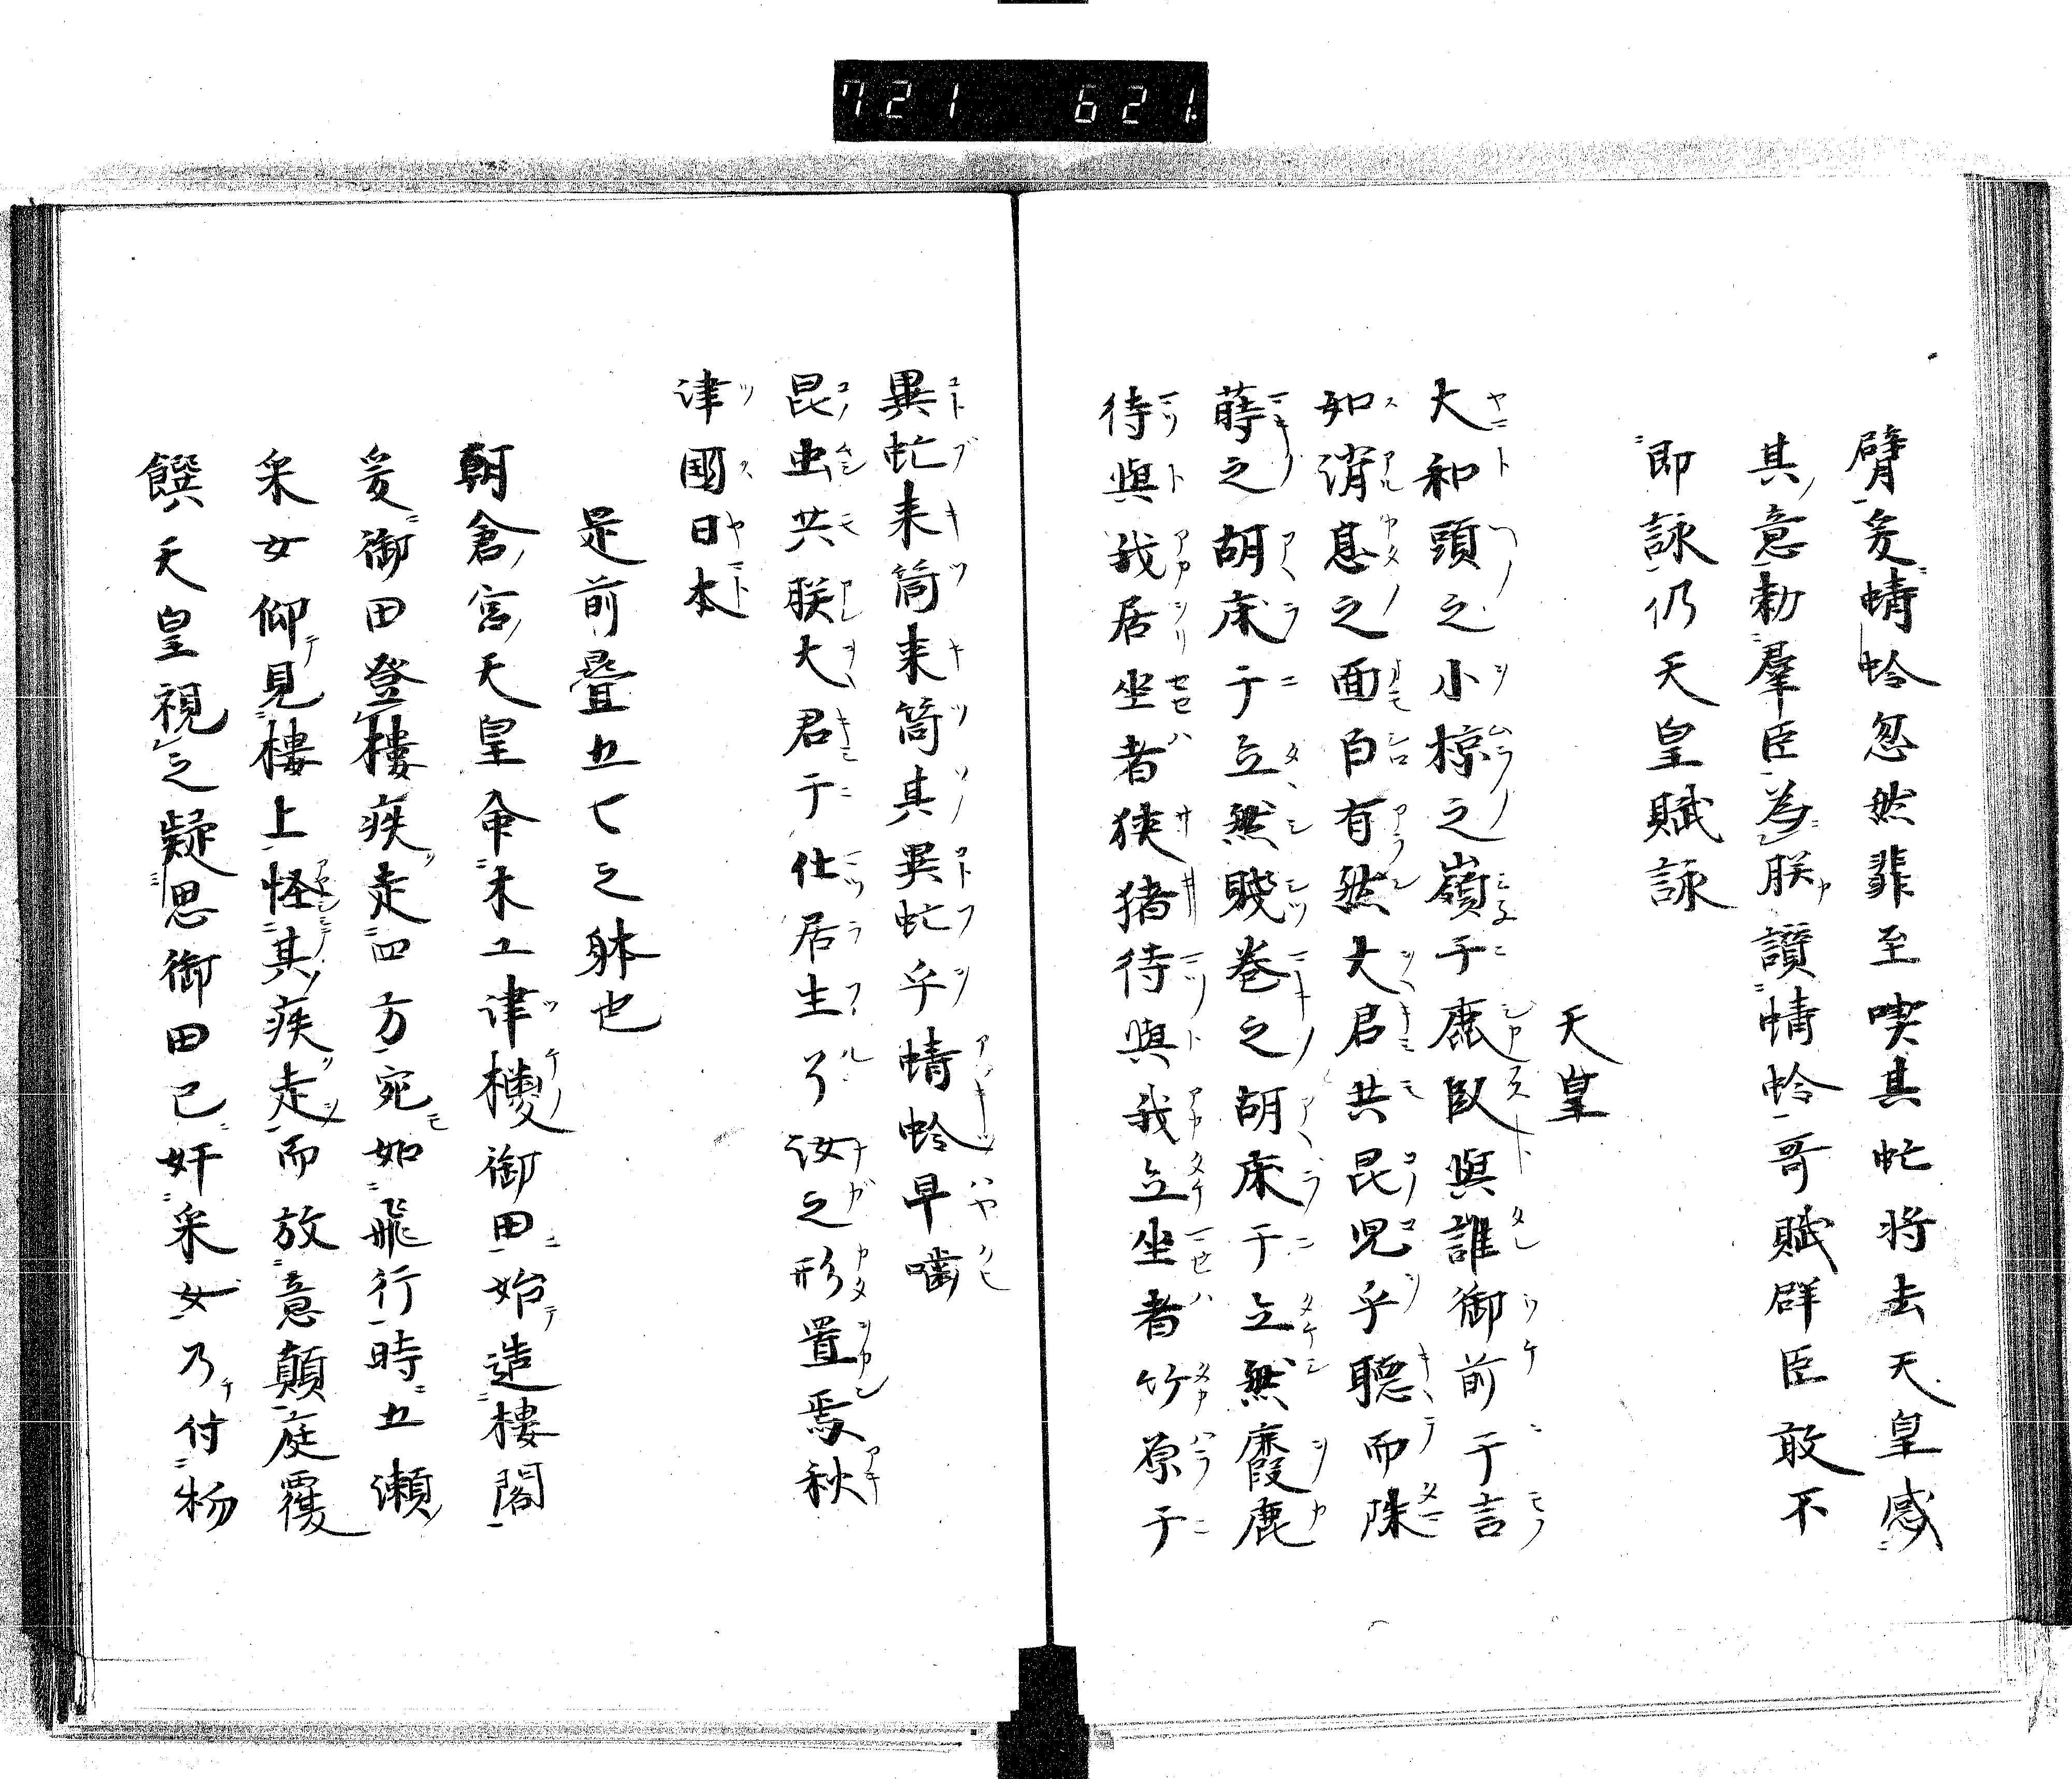 721 621.
臂爰蜻蛉忽然蜚至喫其虻将去天皇感
其意勅羣臣為朕讃蜻蛉哥賦群臣敢不
即詠仍天皇賦詠
天皇
大和頭之小椋之嶺于鹿臥與誰御前于言
如消息之面白有然大君共昆児乎聴而殊
蒔之胡床于立然賤巻之胡床于立然麚鹿
待與我居坐者狭猪待與我立坐者竹原于
異虻来筒来筒其異虻乎蜻蛉早嚙
昆虫共朕大君于仕居生彡汝之形置焉秋
津国日本
是前畳五七之躰也
朝倉宮天皇命木工津樓御田始造樓閣
爰御田登樓疾走四方宛如飛行時五瀬
采女仰見樓上怪其疾走而放意顛庭覆
饌天皇視之疑思御田已奸采女乃付物